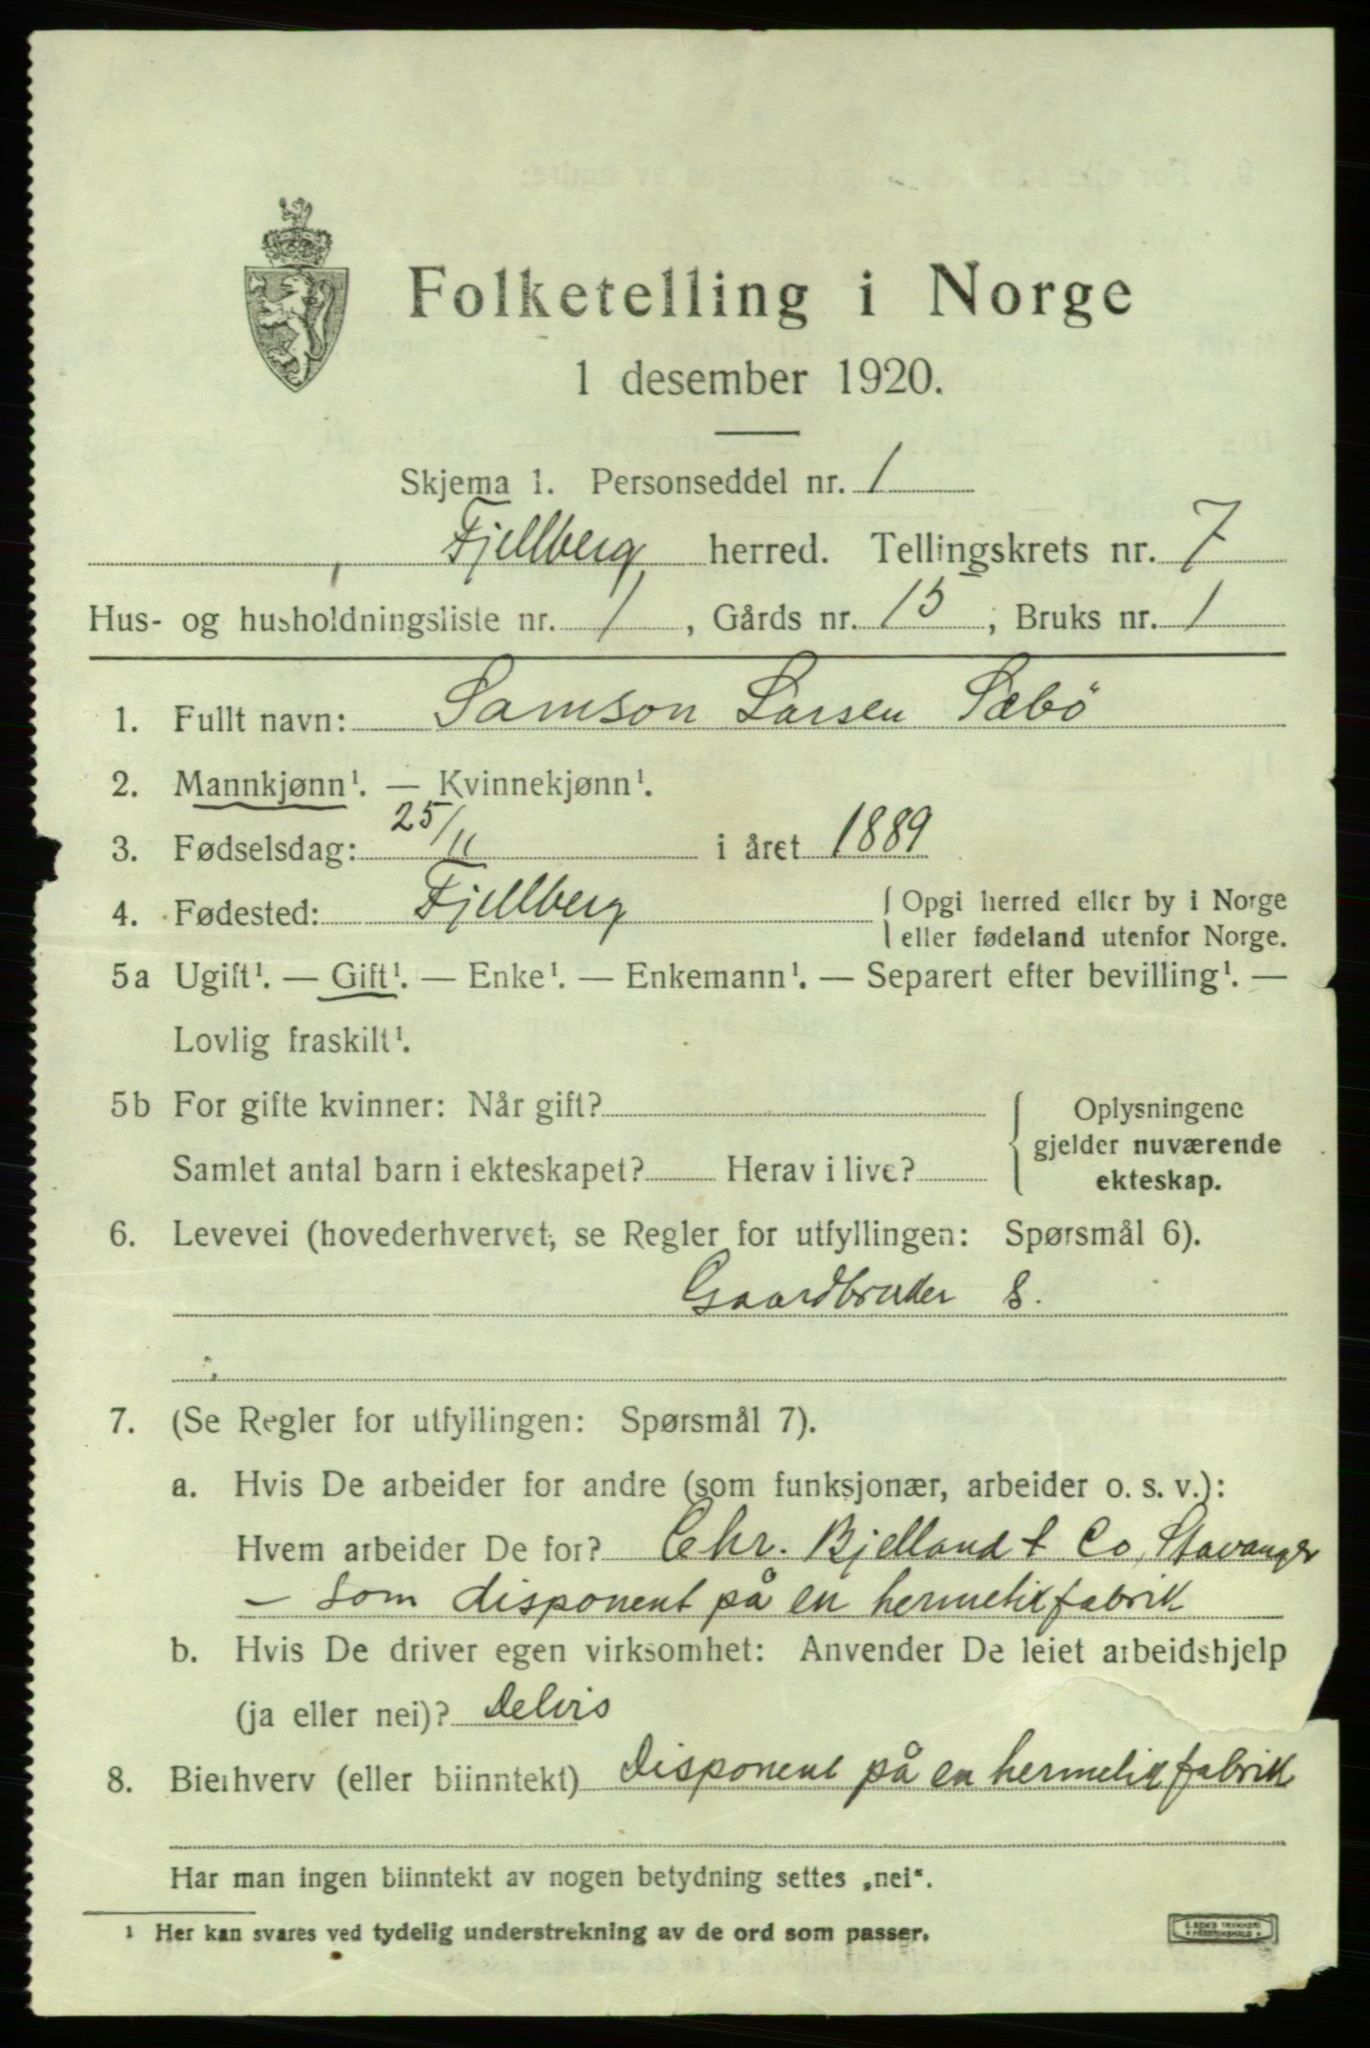 Folketelling i Norge
1 desember 1920.
Skjema 1. Personseddel nr. 1
Fjellberg herred. Tellingskrets nr. 7
Hus- og husholdningsliste nr. 1, Gårds nr. 15; Bruks nr. 1
1. Fullt navn: Samson Larsen Sæbö
2. Mannkjønn¹. — Kvinnekjønn¹.
3. Fødselsdag: 25/11 i året 1889
4. Fødested: Fjellberg
{ Opgi herred eller by i Norge
eller fødeland utenfor Norge.
5a Ugift¹. — Gift¹. — Enke¹. — Enkemann¹. — Separert efter bevilling¹. —
Lovlig fraskilt¹.
5b For gifte kvinner: Når gift?
Samlet antal barn i ekteskapet? Herav i live?
{ Oplysningene
gjelder nuværende
ekteskap.
6. Levevei (hovederhvervet, se Regler for utfyllingen: Spørsmål 6).
Gaardbruker S.
7. (Se Regler for utfyllingen: Spørsmål 7).
a. Hvis De arbeider for andre (som funksjonær, arbeider o. s. v.):
Hvem arbeider De for? Chr. Bjelland & Co, Stavanger
— som disponent på en hermetikfabrik
b. Hvis De driver egen virksomhet: Anvender De leiet arbeidshjelp
(ja eller nei)? Delvis
8. Bierhverv (eller biinntekt) Disponent på en hermetikfabrik
Har man ingen biinntekt av nogen betydning settes „nei“.
¹ Her kan svares ved tydelig understrekning av de ord som passer.